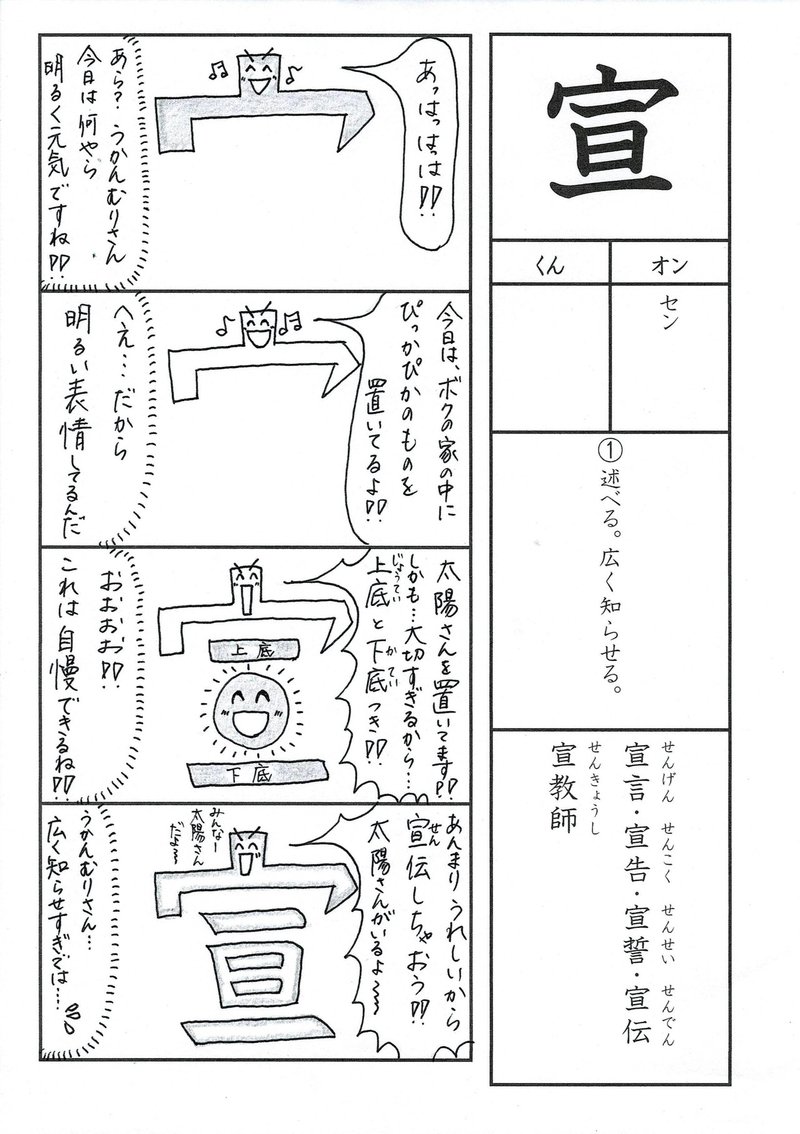 宣
オン
くん
セン
①述べる。広く知らせる。
せんげん せんこく せんせい せんでん
宣言・宣告・宣誓・宣伝
せんきょうし
宣教師
あっはっはっは!!
あら?うかんむりさん
今日は何やら
明るく元気ですね!!
今日は、ボクの家の中に
ぴっかぴかのものを
置いてるよ!!
へえ…だから
明るい表情してるんだ
太陽さんを置いてます!!
しかも…大切すぎるから…
じょうてい かてい
上底と下底つき!!
上底
下底
おおおお!!
これは自慢できるね!!
あんまりうれしいから
せん
宣伝しちゃおう!!
太陽さんがいるよ〜〜
みんなー
太陽さん
だよ〜〜
宣
うかんむりさん…
広く知らせすぎでは…